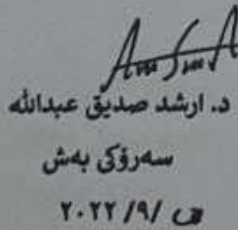 د. ارشد صدیق عبدالله
سەرۆکی بەش
/٩/ ٢٠٢٢